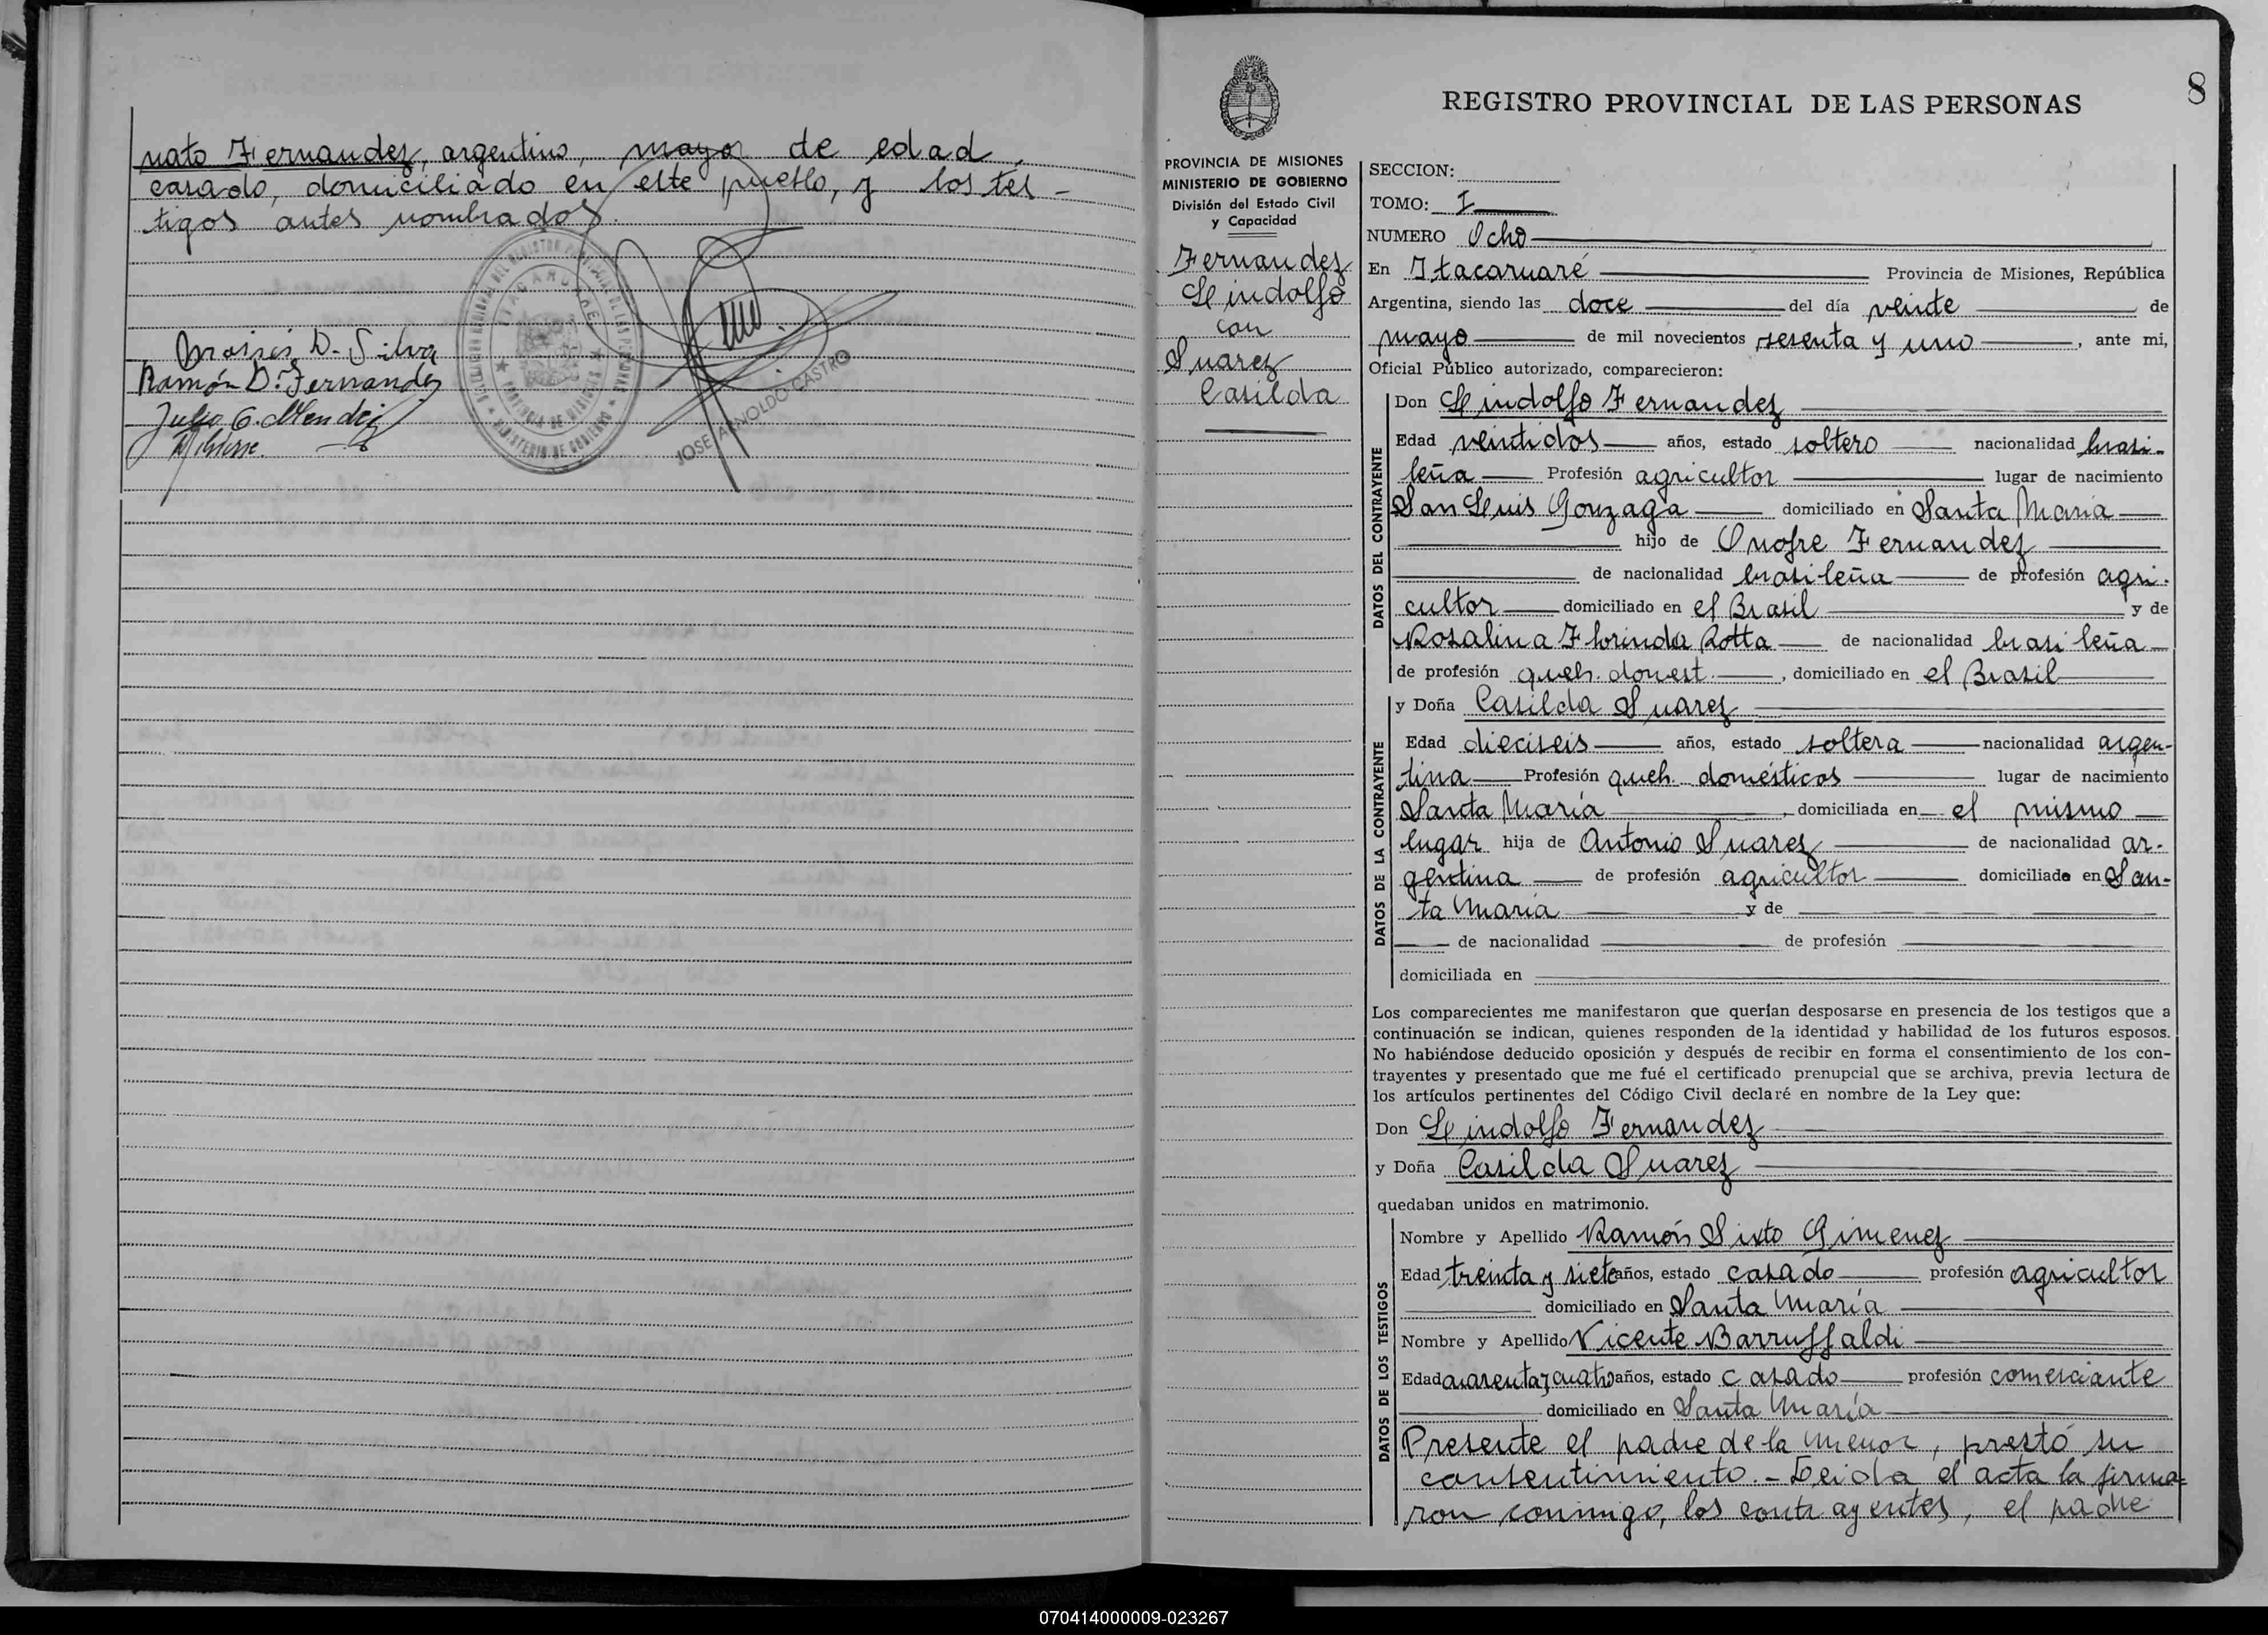 nato Fernandez, argentino, mayor de edad,
casado, domiciliado en este pueblo, y los tes-
tigos antes nombrados.
Moisés D. Silva
Ramón D. Fernandez
Julio C. Mendez
JOSE ARNOLDO CASTRO
ITACARUARE
PROVINCIA DE MISIONES
MINISTERIO DE GOBIERNO
8
REGISTRO PROVINCIAL DE LAS PERSONAS
PROVINCIA DE MISIONES
MINISTERIO DE GOBIERNO
División del Estado Civil
y Capacidad
Fernandez
Lindolfo
con
Suarez
Casilda
SECCION:
TOMO: I
NUMERO Ocho
En Itacaruaré Provincia de Misiones, República
Argentina, siendo las doce del día veinte de
mayo de mil novecientos sesenta y uno, ante mi,
Oficial Público autorizado, comparecieron:
DATOS DEL CONTRAYENTE
Don Lindolfo Fernandez
Edad veintidos años, estado soltero nacionalidad brasi-
leña Profesión agricultor lugar de nacimiento
San Luis Gonzaga domiciliado en Santa María
hijo de Onofre Fernandez
de nacionalidad brasileña de profesión agri-
cultor domiciliado en el Brasil y de
Rosalina Florinda Rotta de nacionalidad brasileña
de profesión queh. domest. , domiciliado en el Brasil
DATOS DE LA CONTRAYENTE
y Doña Casilda Suarez
Edad dieciseis años, estado soltera nacionalidad argen-
tina Profesión queh. domésticos lugar de nacimiento
Santa María , domiciliada en el mismo
lugar hija de Antonio Suarez de nacionalidad ar-
gentina de profesión agricultor domiciliado en San-
ta María y de
de nacionalidad de profesión
domiciliada en
Los comparecientes me manifestaron que querían desposarse en presencia de los testigos que a
continuación se indican, quienes responden de la identidad y habilidad de los futuros esposos.
No habiéndose deducido oposición y después de recibir en forma el consentimiento de los con-
trayentes y presentado que me fué el certificado prenupcial que se archiva, previa lectura de
los artículos pertinentes del Código Civil declaré en nombre de la Ley que:
Don Lindolfo Fernandez
y Doña Casilda Suarez
quedaban unidos en matrimonio.
DATOS DE LOS TESTIGOS
Nombre y Apellido Ramón Sixto Gimenez
Edad treinta y siete años, estado casado profesión agricultor
domiciliado en Santa María
Nombre y Apellido Vicente Barruffaldi
Edad cuarenta y cuatro años, estado casado profesión comerciante
domiciliado en Santa María
Presente el padre de la menor, prestó su
consentimiento.- Leída el acta la firma-
ron conmigo, los contrayentes, el padre
070414000009-023267